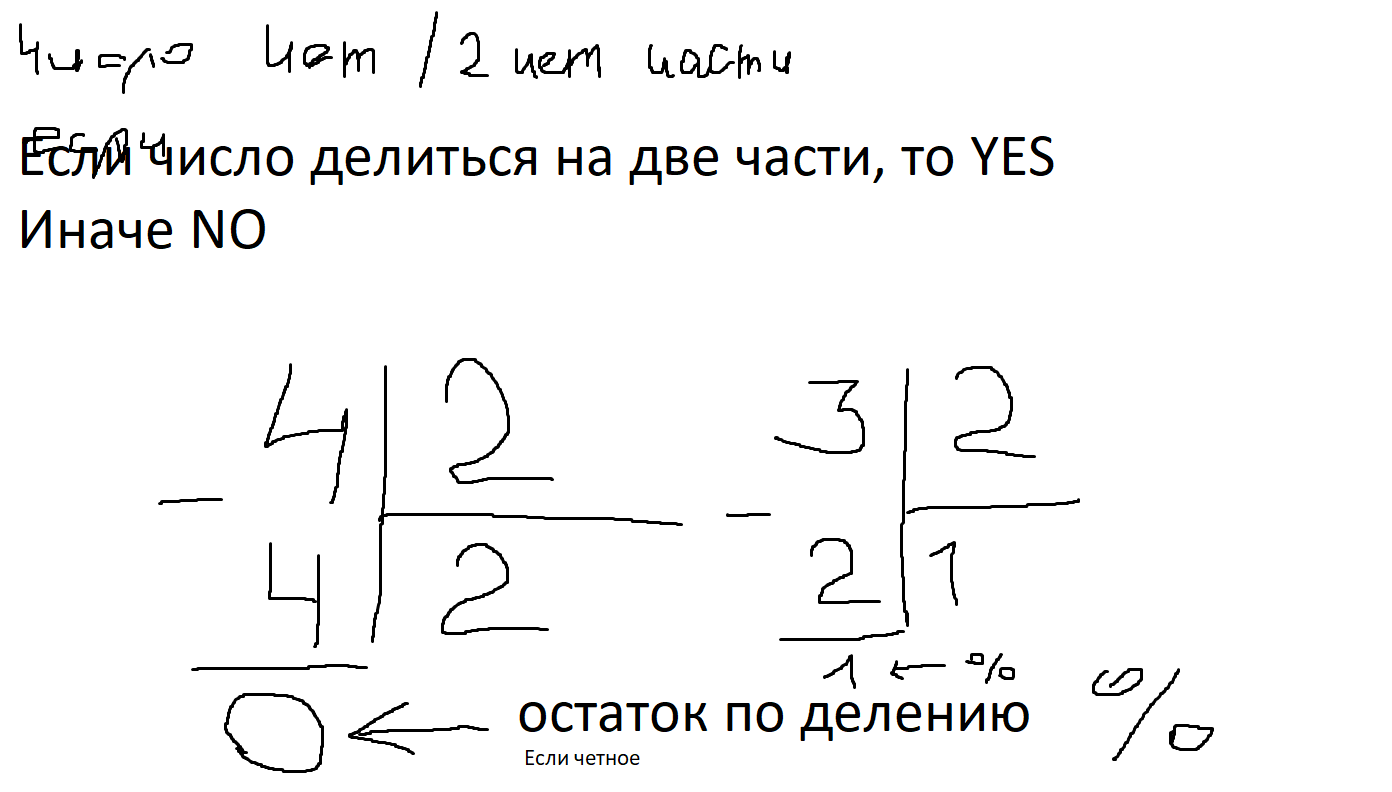 число чет / 2 чет части
если
Если число делиться на две части, то YES
Иначе NO
4 2 3 2
- -
4 2 2 1
1 ← %
0 ← остаток по делению %
Если четное